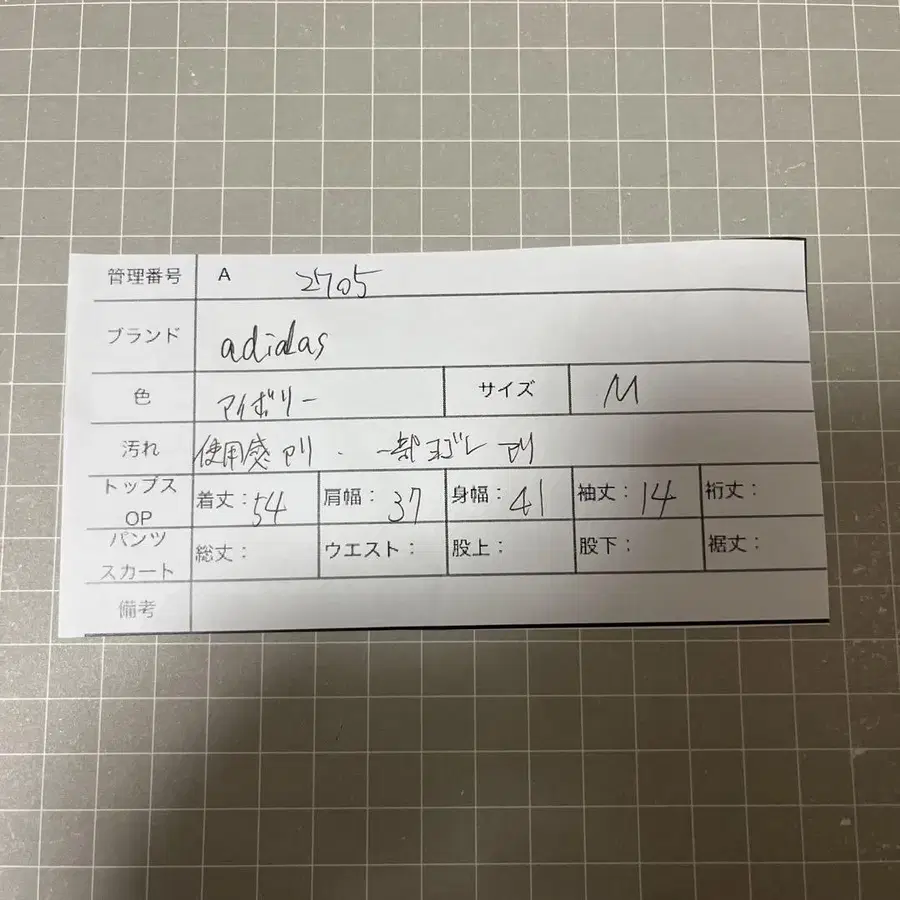 管理番号 A 2705
ブランド adidas
色 アイボリー サイズ M
汚れ 使用感アリ ・ 一部ヨゴレ アリ
トップス OP 着丈：54 肩幅：37 身幅：41 袖丈：14 裄丈：
パンツ スカート 総丈： ウエスト： 股上： 股下： 裾丈：
備考